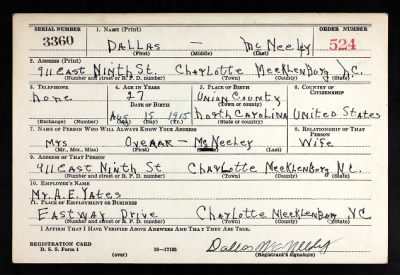 SERIAL NUMBER 1. NAME (Print) ORDER NUMBER
3360 DALLAS — McNeeley 524
(First) (Middle) (Last)
2. ADDRESS (Print)
911 East Ninth St. Charlotte Mecklenburg N.C.
(Number and street or R. F. D. number) (Town) (County) (State)
3. TELEPHONE 4. AGE IN YEARS 5. PLACE OF BIRTH 6. COUNTRY OF CITIZENSHIP
none 27 Union County
DATE OF BIRTH (Town or county)
Aug 15 1915 North Carolina United States
(Exchange) (Number) (Mo.) (Day) (Yr.) (State or country)
7. NAME OF PERSON WHO WILL ALWAYS KNOW YOUR ADDRESS 8. RELATIONSHIP OF THAT PERSON
Mrs McNeeley Wife
(Mr., Mrs., Miss) (First) (Middle) (Last)
9. ADDRESS OF THAT PERSON
911 East Ninth St Charlotte Mecklenburg N.C.
(Number and street or R. F. D. number) (Town) (County) (State)
10. EMPLOYER'S NAME
Mr. A. E. Yates
11. PLACE OF EMPLOYMENT OR BUSINESS
Eastway Drive Charlotte Mecklenburg NC
(Number and street or R. F. D. number) (Town) (County) (State)
I AFFIRM THAT I HAVE VERIFIED ABOVE ANSWERS AND THAT THEY ARE TRUE.
REGISTRATION CARD
D. S. S. Form 1 16—17105 Dallas McNeeley
(over) (Registrant's signature)